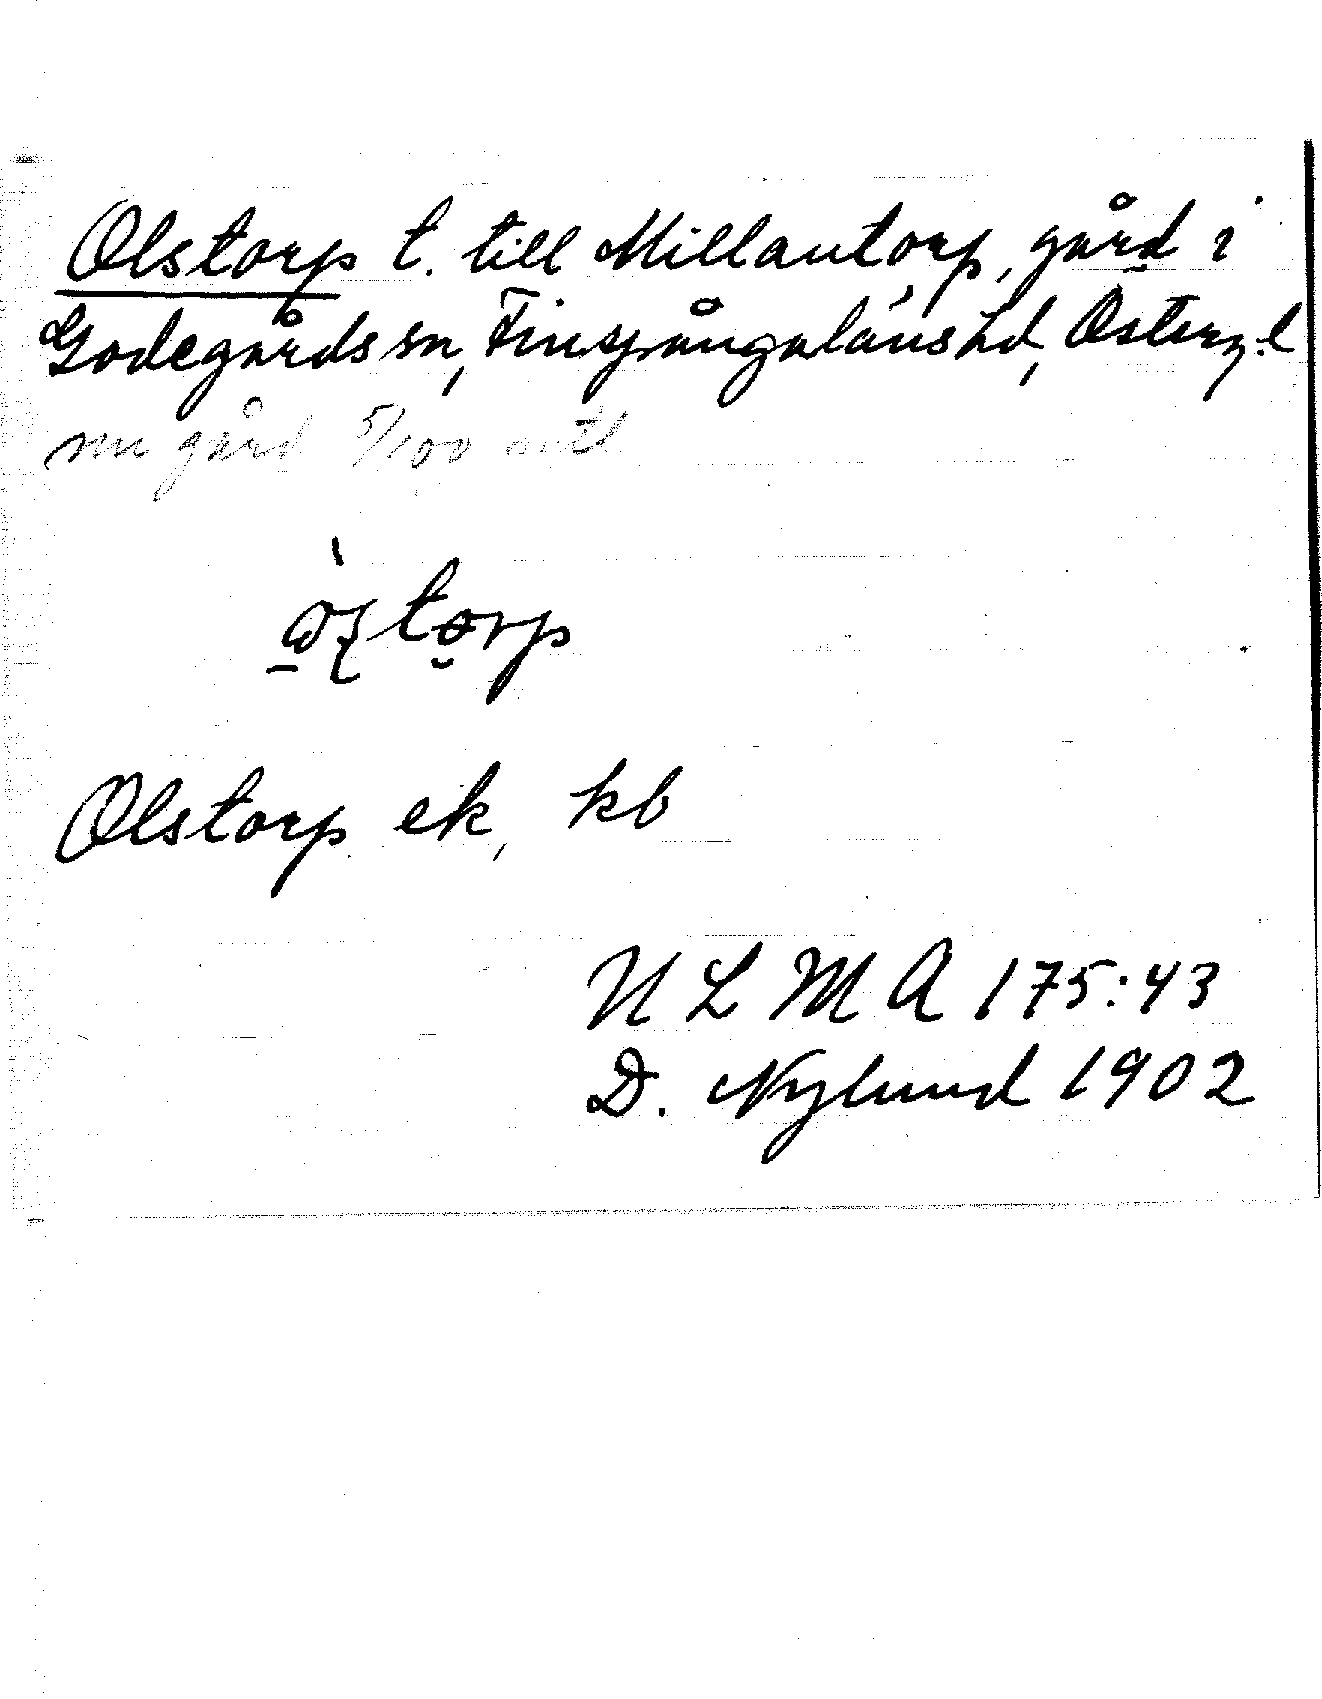 Olstorp t. till Millantorp, gård i
Godegårds sn, Finspångaläns hd, Österg.l
nu gård 5/100 mtl
Olstorp ek, kb
ULMA 175:43
D. Nylund 1902